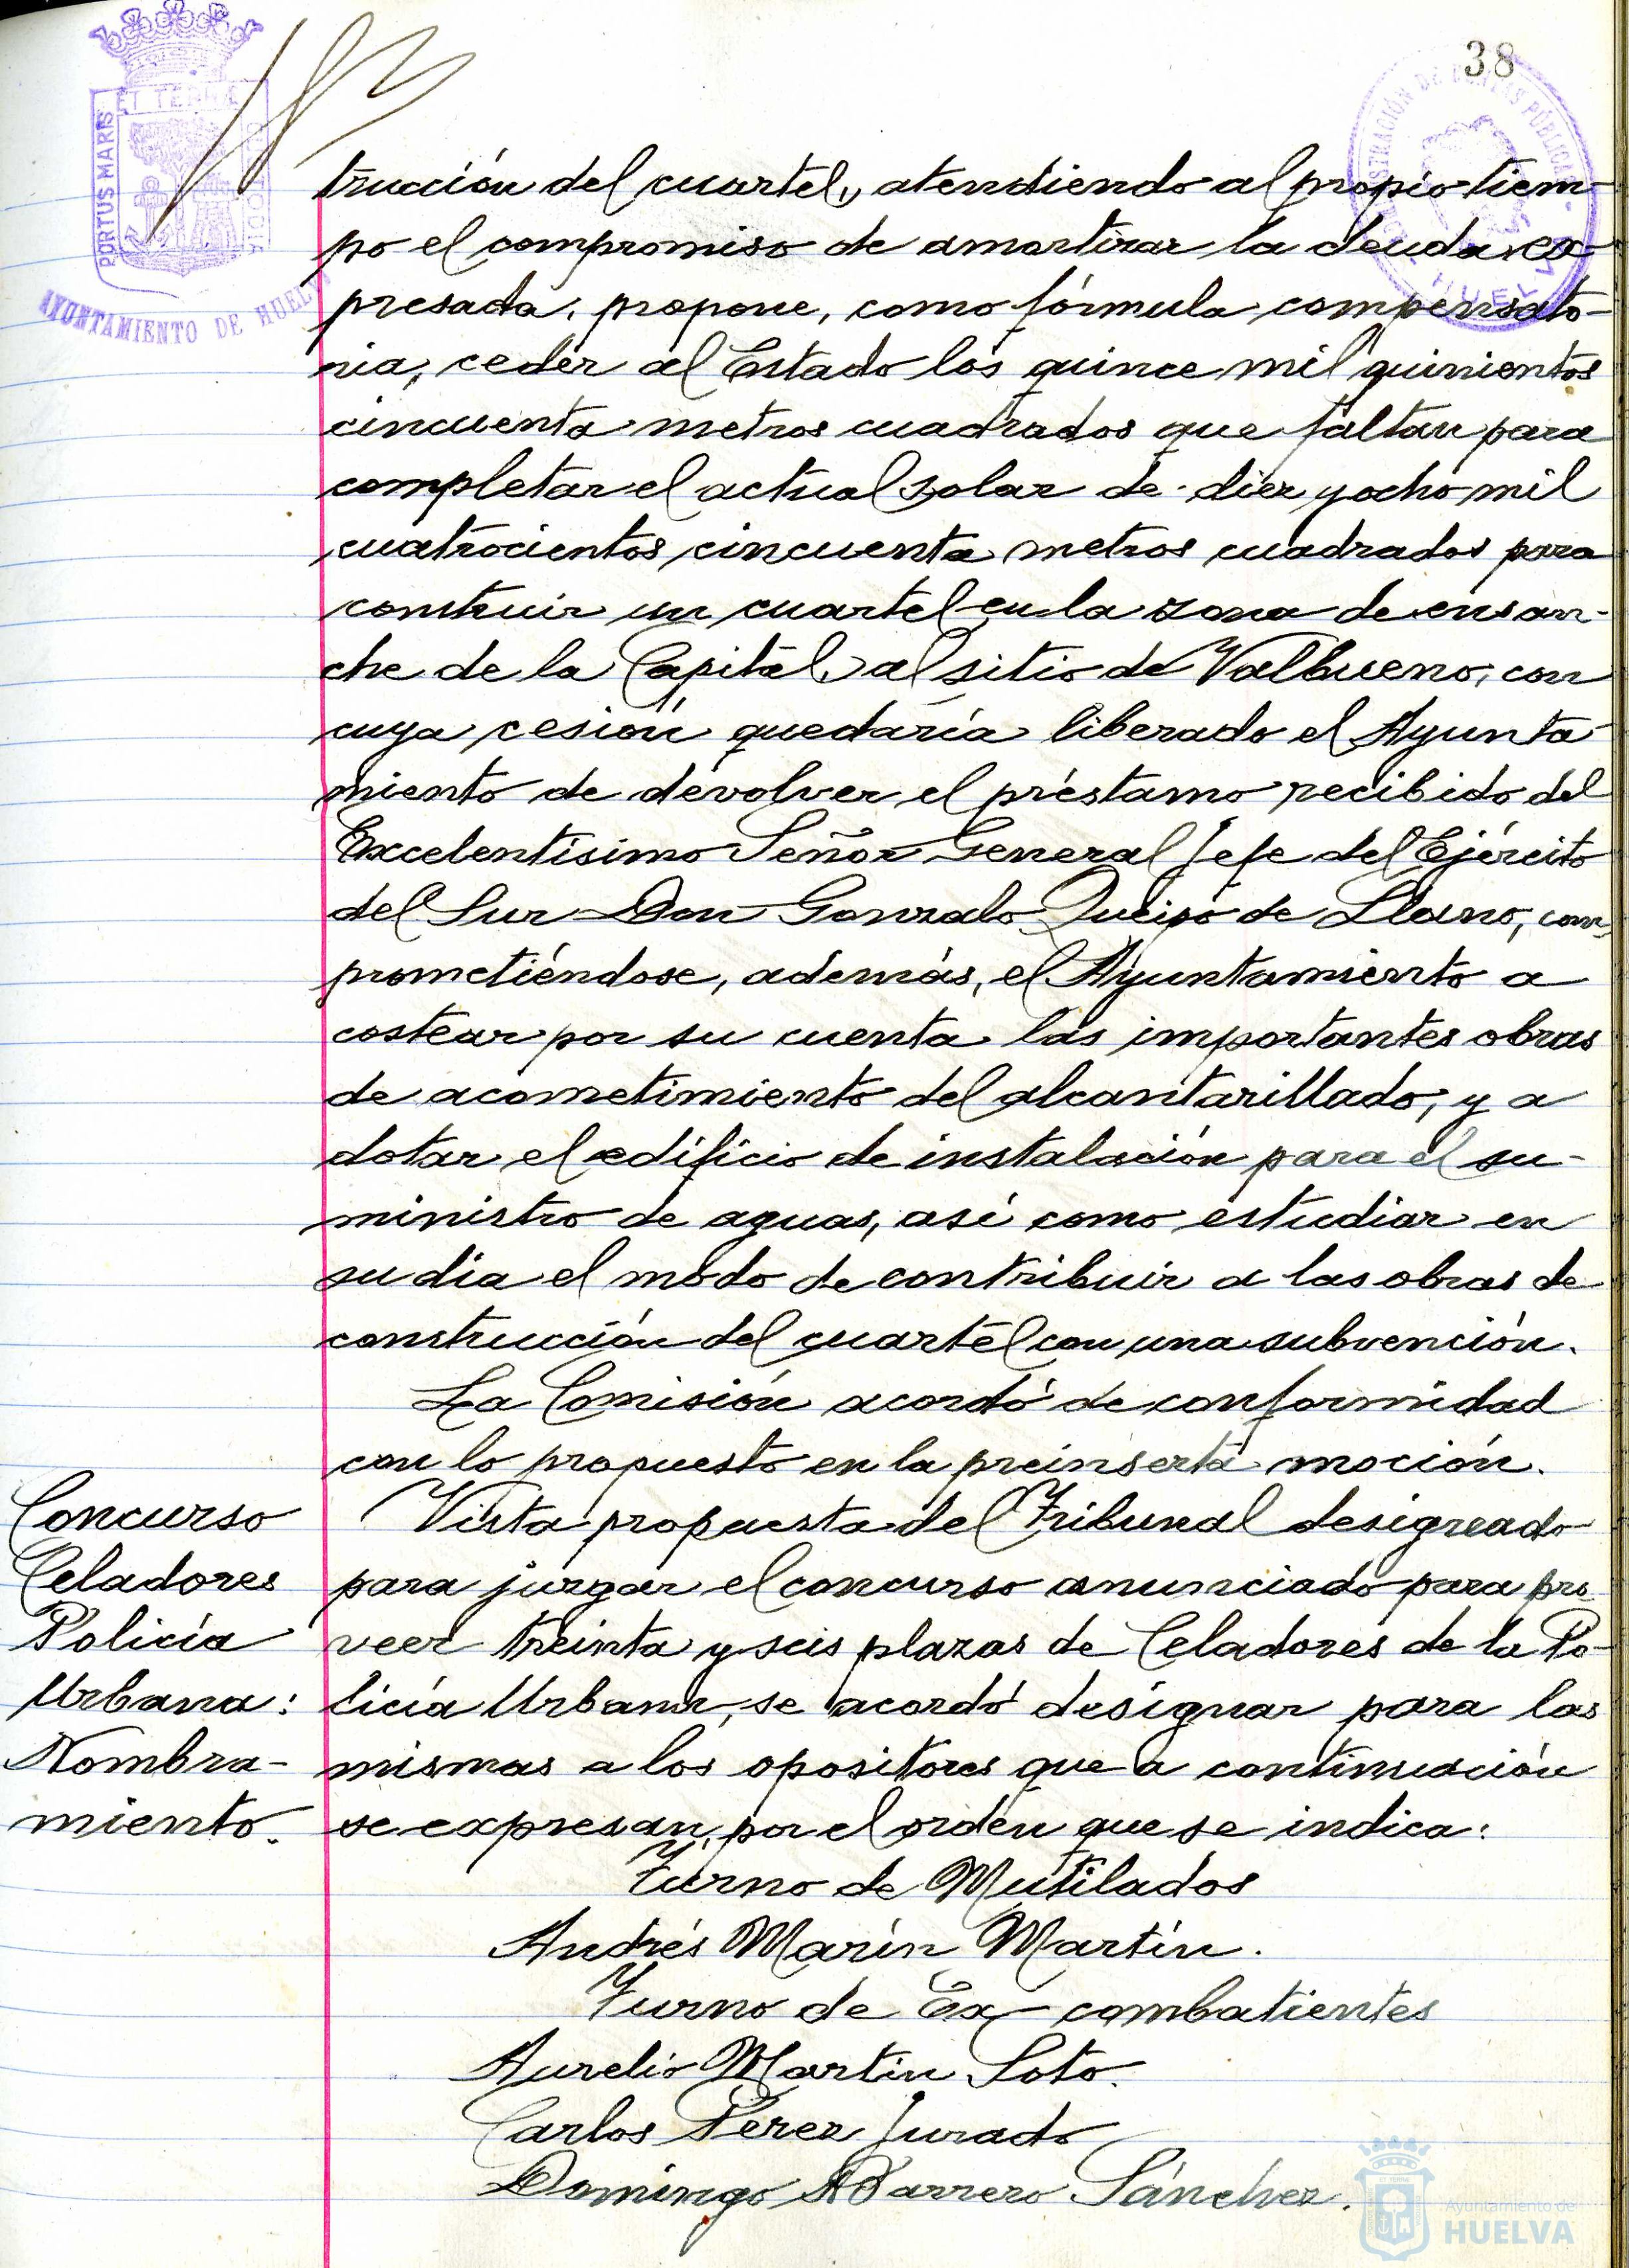 38
PORTUS MARIS
ET TERRAE
CUSTODIA
AYUNTAMIENTO DE HUELVA
trucción del cuartel, atendiendo al propio tiem-
po el compromiso de amortizar la deuda ex-
presada, propone, como fórmula compensato-
ria, ceder al Estado los quince mil quinientos
cincuenta metros cuadrados que faltan para
completar el actual solar de diez y ocho mil
cuatrocientos cincuenta metros cuadrados para
construir un cuartel en la zona de ensan-
che de la Capital, al sitio de Valbueno, con
cuya cesión quedaría liberado el Ayunta-
miento de devolver el préstamo recibido del
Excelentísimo Señor General Jefe del Ejército
del Sur Don Gonzalo Queipo de Llano, com-
prometiéndose, además, el Ayuntamiento a
costear por su cuenta las importantes obras
de acometimiento del alcantarillado, y a
dotar el edificio de instalación para el su-
ministro de aguas, así como estudiar en
su dia el modo de contribuir a las obras de
construcción del cuartel con una subvención.
La Comisión acordó de conformidad
con lo propuesto en la preinserta moción.
Concurso
Celadores
Policía
Urbana:
Nombra-
miento.
Vista propuesta del Tribunal designado
para juzgar el concurso anunciado para pro-
veer treinta y seis plazas de Celadores de la Po-
licía Urbana, se acordó designar para las
mismas a los opositores que a continuación
se expresan, por el orden que se indica:
Turno de Mutilados
Andrés Marín Martín.
Turno de Ex-combatientes
Aurelio Martin Soto.
Carlos Perez Jurado
Domingo Barrero Sánchez.
Ayuntamiento de
HUELVA